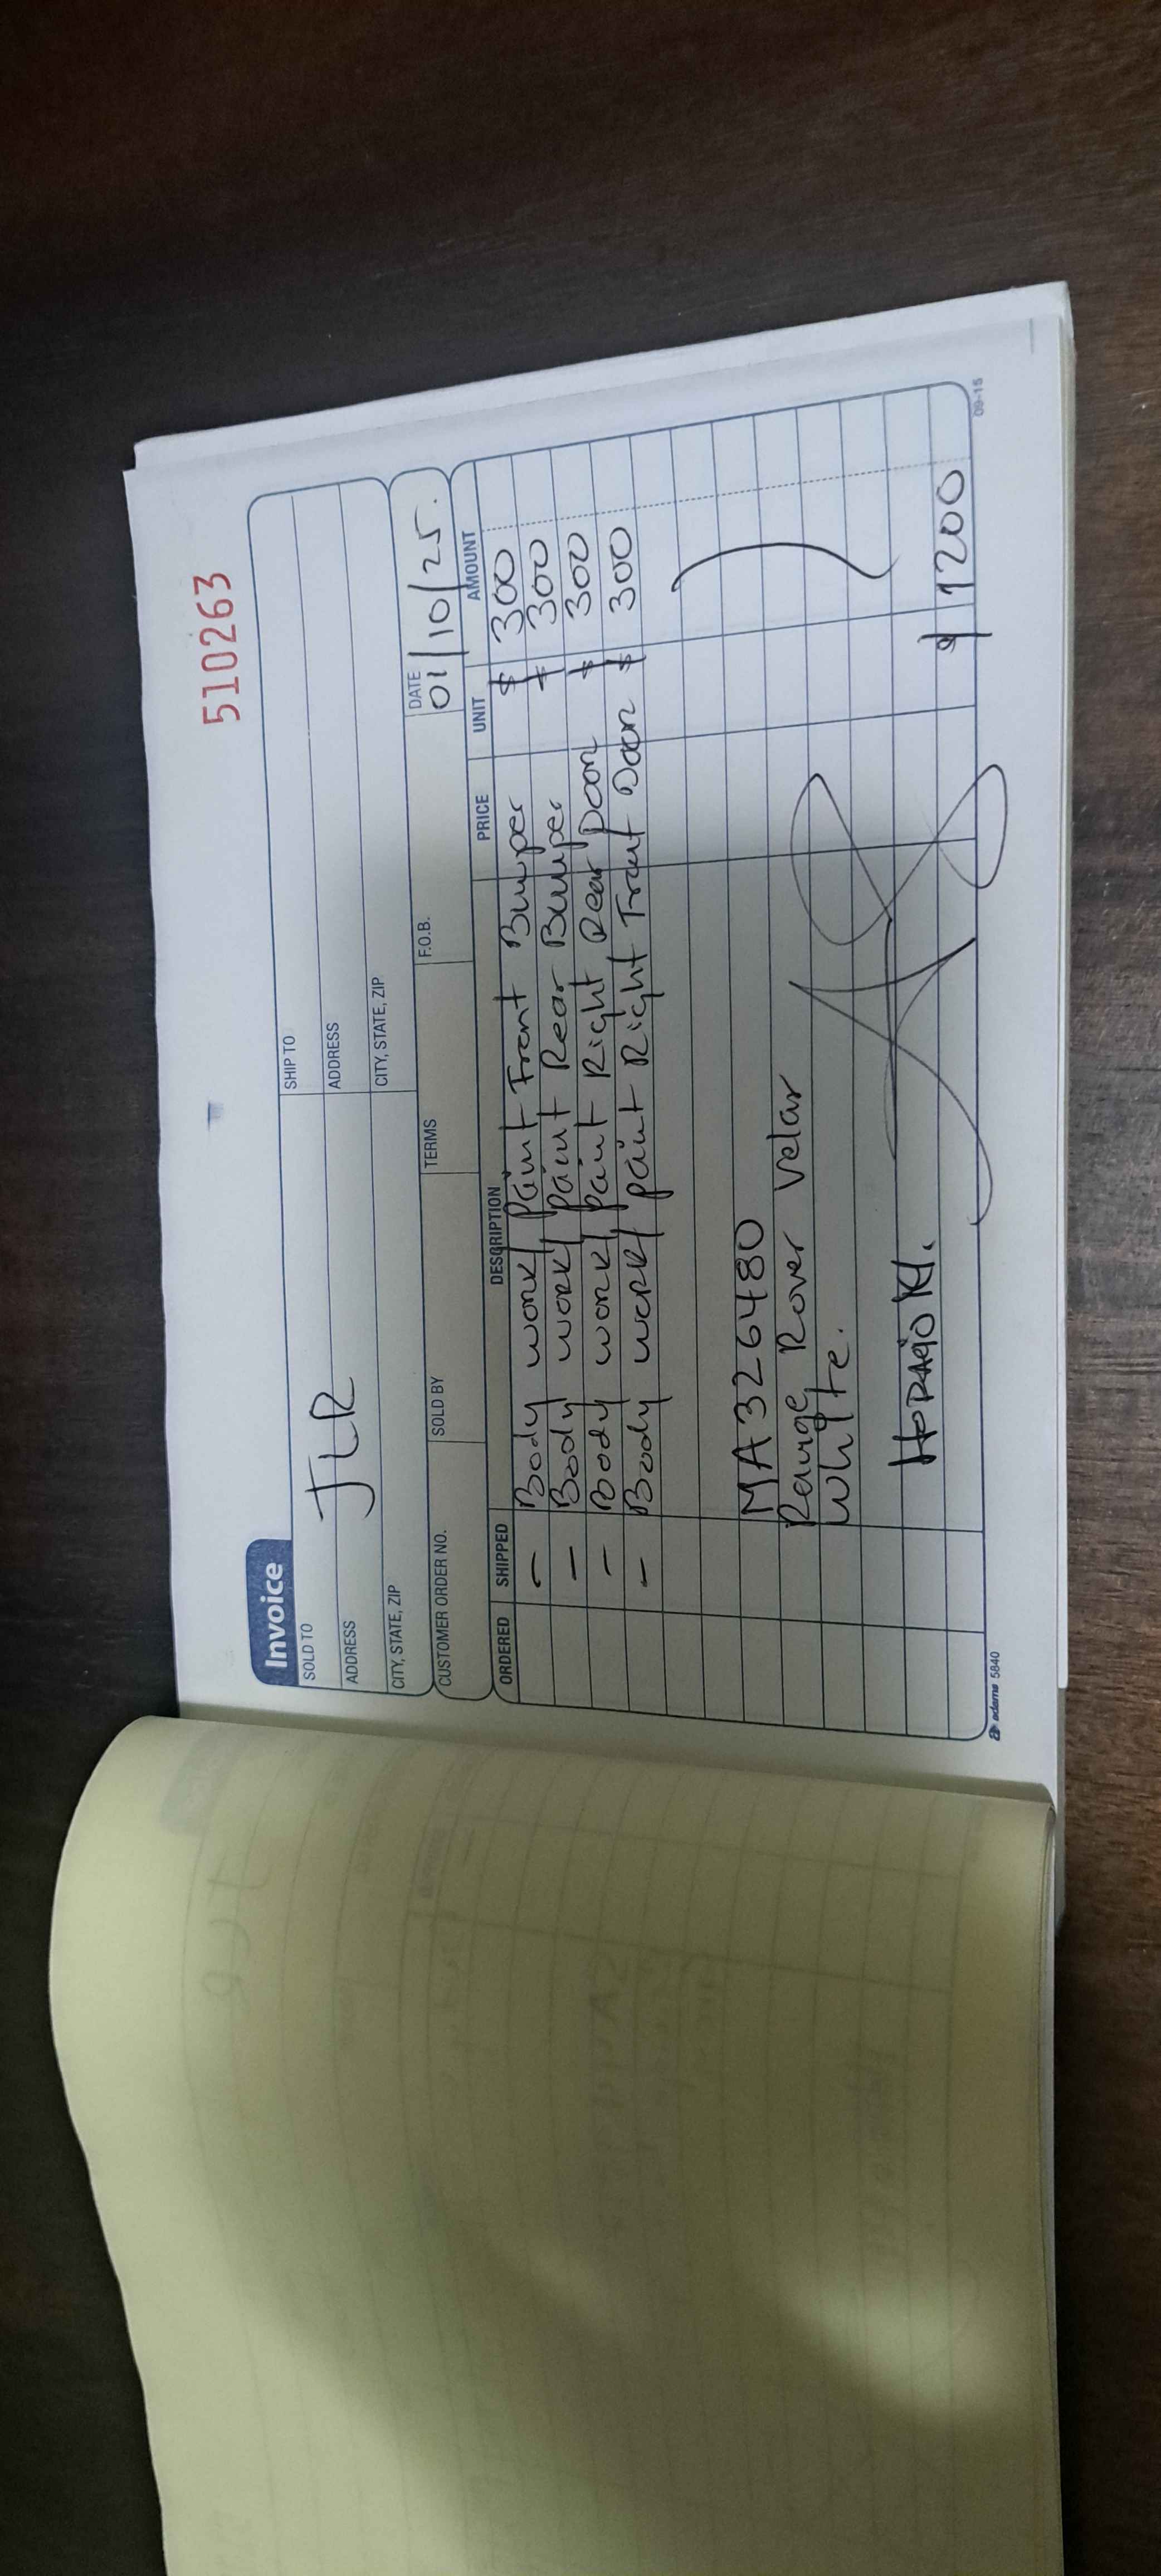 510263
Invoice
SOLD TO JLR
SHIP TO
ADDRESS
ADDRESS
CITY, STATE, ZIP
CITY, STATE, ZIP
CUSTOMER ORDER NO. SOLD BY TERMS F.O.B. DATE 01/10/25.
ORDERED SHIPPED DESCRIPTION PRICE UNIT AMOUNT
- Body work/paint Front Bumper $ 300
- Body work/paint Rear Bumper $ 300
- Body work/paint Right Rear Door $ 300
- Body work/paint Right Front Door $ 300
MA326480
Range Rover Velar
White.
$ 1200
adams 5840
09-15